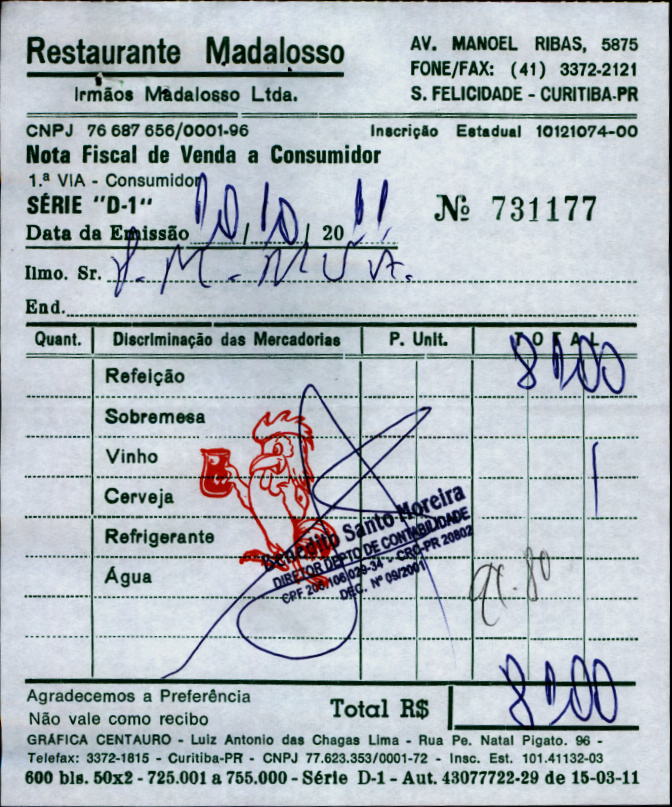 Restaurante Madalosso
Irmãos Madalosso Ltda.
AV. MANOEL RIBAS, 5875
FONE/FAX: (41) 3372-2121
S. FELICIDADE - CURITIBA-PR
CNPJ 76 687 656/0001-96
Inscrição Estadual 10121074-00
Nota Fiscal de Venda a Consumidor
1.ª VIA - Consumidor
SÉRIE "D-1"
Nº 731177
Data da Emissão 10/10/2011
Ilmo. Sr. P. M. M U A.
End.
Quant. Discriminação das Mercadorias P. Unit. TOTAL
Refeição
Sobremesa
Vinho
Cerveja
Refrigerante
Água
Benedito Santo Moreira
DIRETOR DEPTO DE CONTABILIDADE
CPF 206/106 029-34 - CRC-PR 20802
DEC. Nº 09/2001
Agradecemos a Preferência
Não vale como recibo
Total R$
GRÁFICA CENTAURO - Luiz Antonio das Chagas Lima - Rua Pe. Natal Pigato. 96 -
Telefax: 3372-1815 - Curitiba-PR - CNPJ 77.623.353/0001-72 - Insc. Est. 101.41132-03
600 bls. 50x2 - 725.001 a 755.000 - Série D-1 - Aut. 43077722-29 de 15-03-11